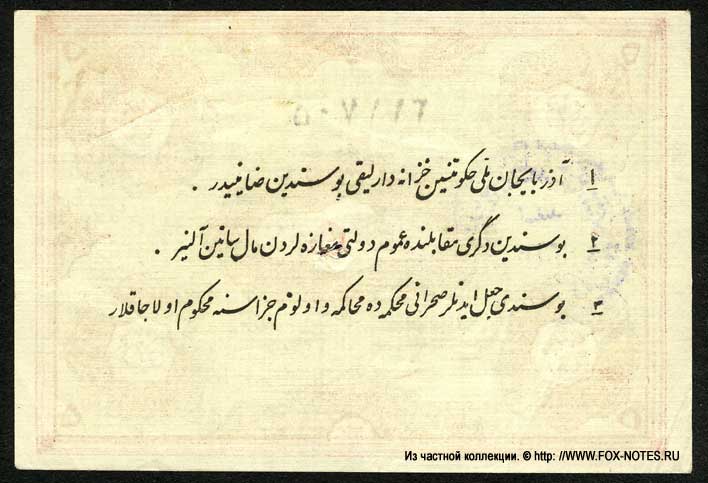 ۱ آذربایجان ملی حکومتنین خزانه دارلیقی بو سندین ضامنیدیر .
۲ بو سندین دگری مقابلنده عموم دولتی مغازه لردن مال ساتین آلنیر .
۳ بو سندی جعل ایدنلر صحرائی محکمه ده محاکمه و اولوم جزاسنه محکوم اولاجاقلار
Из частной коллекции. © http: //WWW.FOX-NOTES.RU